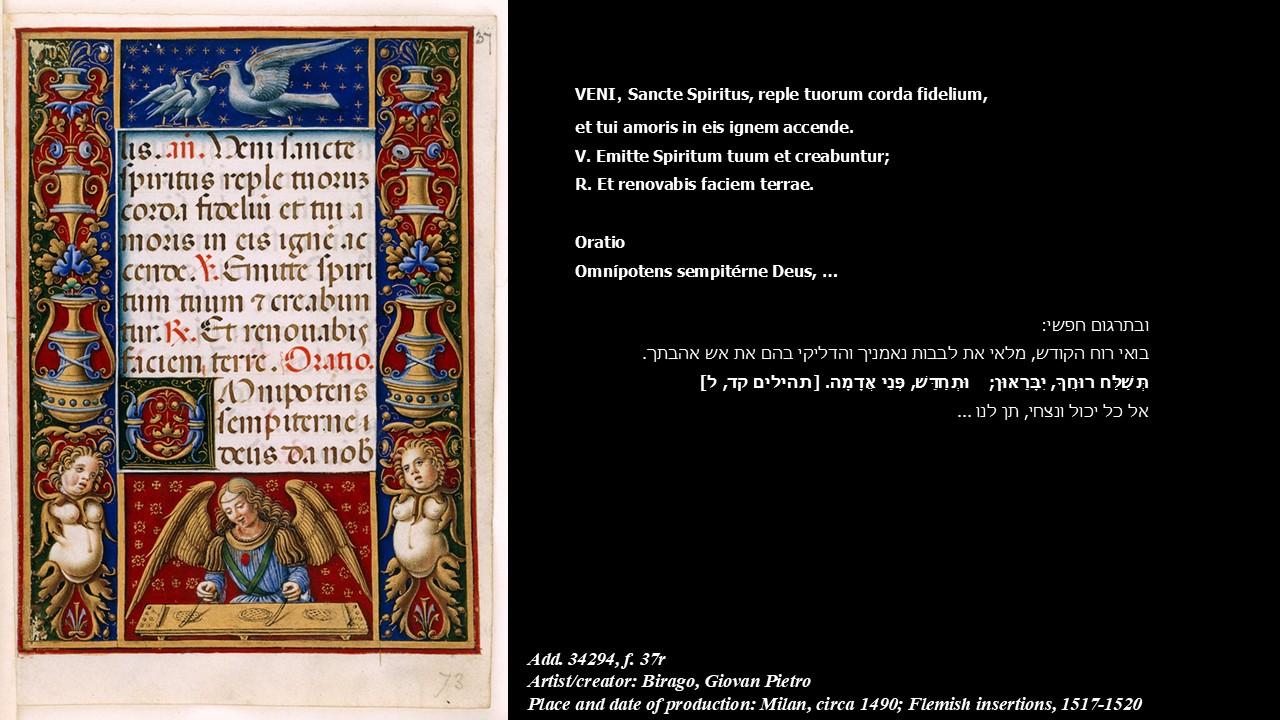 37
lis. an̄. Veni sancte
spiritus reple tuoruz
corda fideliū et tui a
moris in eis ignē ac
cende. V. Emitte spiri
tum tuum ⁊ creabun
tur. R. Et renouabis
faciem terre. Oratio.
Omnipotens
sempiterne
deus da nob
73
VENI, Sancte Spiritus, reple tuorum corda fidelium,
et tui amoris in eis ignem accende.
V. Emitte Spiritum tuum et creabuntur;
R. Et renovabis faciem terrae.
Oratio
Omnípotens sempitérne Deus, ...
ובתרגום חפשי:
בואי רוח הקודש, מלאי את לבבות נאמניך והדליקי בהם את אש אהבתך.
תְּשַׁלַּח רוּחֲךָ, יִבָּרֵאוּן; וּתְחַדֵּשׁ, פְּנֵי אֲדָמָה. [תהילים קד, ל]
אל כל יכול ונצחי, תן לנו ...
Add. 34294, f. 37r
Artist/creator: Birago, Giovan Pietro
Place and date of production: Milan, circa 1490; Flemish insertions, 1517-1520